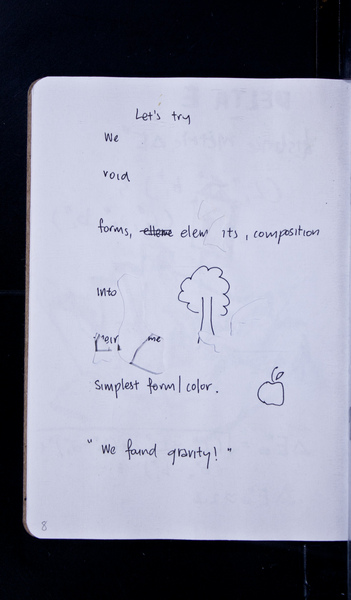 Let's try
We
void
forms, elem its, composition
into
their me
simplest form/color.
"We found gravity!"
8